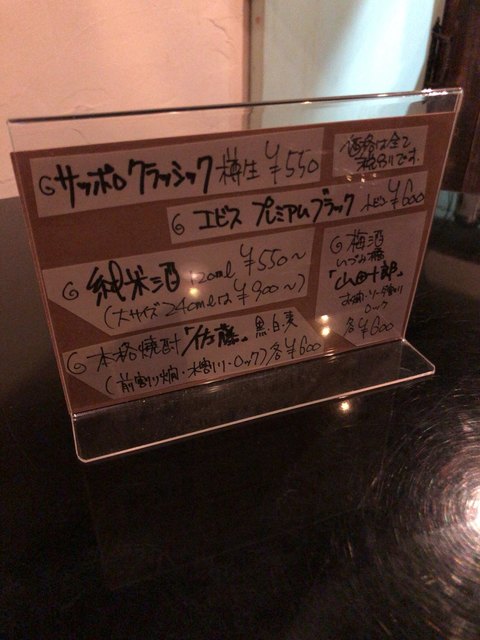 サッポロクラッシック 樽生 ¥550
価格は全て
税別です.
エビス プレミアムブラック ¥600
純米酒 120ml ¥550～
(大サイズ240mlは ¥900～)
本格焼酎「佐藤」黒・白・麦
(前割り燗・水割り・ロック)各¥600
梅酒
いづみ橋
「山田十郎」
お湯・ソーダ割り
ロック
各¥600